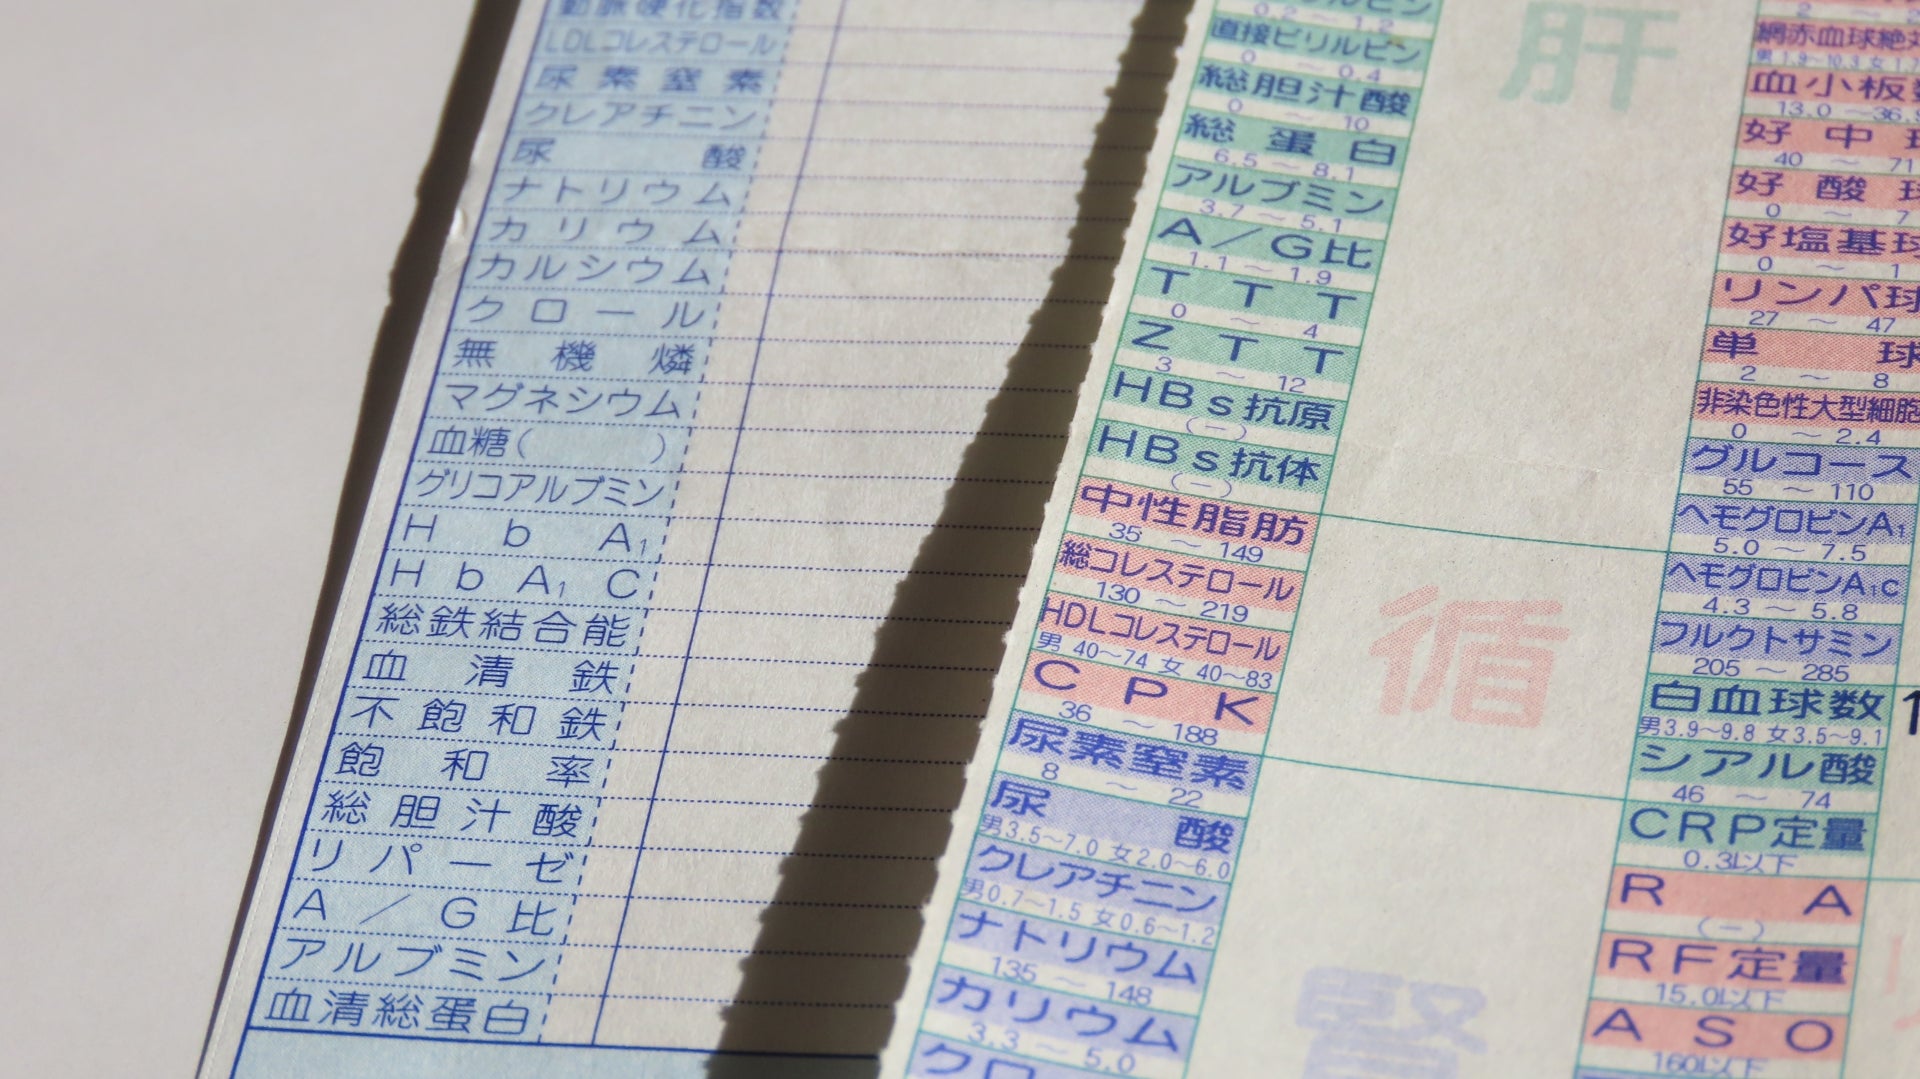 動脈硬化指数
LDLコレステロール
尿素窒素
クレアチニン
尿酸
ナトリウム
カリウム
カルシウム
クロール
無機燐
マグネシウム
血糖( )
グリコアルブミン
HbA₁
HbA₁C
総鉄結合能
血清鉄
不飽和鉄
飽和率
総胆汁酸
リパーゼ
A/G比
アルブミン
血清総蛋白
0.2~1.2
直接ビリルビン
0~0.4
総胆汁酸
0~10
総蛋白
6.5~8.1
アルブミン
3.7~5.1
A/G比
1.1~1.9
TTT
0~4
ZTT
3~12
HBs抗原
(-)
HBs抗体
(-)
中性脂肪
35~149
総コレステロール
130~219
HDLコレステロール
男 40~74 女 40~83
CPK
36~188
尿素窒素
8~22
尿酸
男3.5~7.0 女2.0~6.0
クレアチニン
男0.7~1.5 女0.6~1.2
ナトリウム
135~148
カリウム
3.3~5.0
クロ
肝
循
腎
網赤血球絶対
血小板数
13.0~36.
好中球
40~71
好酸球
0~7
好塩基球
0~1
リンパ球
27~47
単球
2~8
非染色性大型細胞
0~2.4
グルコース
55~110
ヘモグロビンA₁
5.0~7.5
ヘモグロビンA₁c
4.3~5.8
フルクトサミン
205~285
白血球数
男3.9~9.8 女3.5~9.1
シアル酸
46~74
CRP定量
0.3以下
RA
(-)
RF定量
15.0以下
ASO
160以下